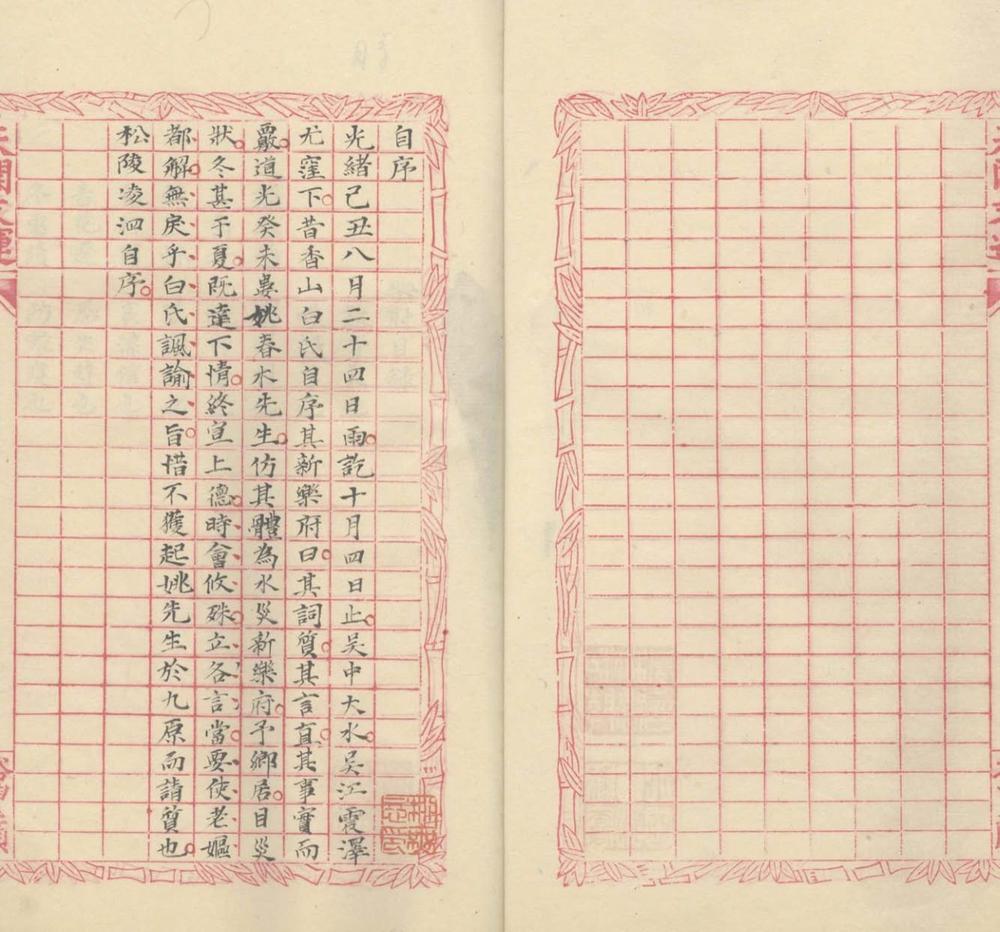 自序
光緒己丑八月二十四日雨。訖十月四日止。吳中大水。吳江震澤
尤窪下。昔香山白氏自序其新樂府曰。其詞質。其言直。其事實而
覈。道光癸未婁姚春木先生。仿其體為水災新樂府。予鄉居。目災
狀。冬甚于夏。既達下情。終宣上德。時會攸殊。立各言當。要使老嫗
都解。無戾乎白氏諷諭之旨。惜不獲起姚先生於九原而請質也。
松陵凌泗自序。